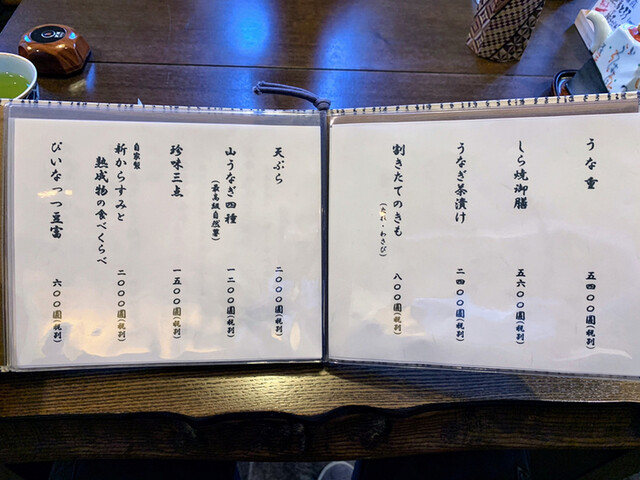 うな重
五四〇〇圓(税別)
しら焼御膳
五六〇〇圓(税別)
うなぎ茶漬け
二四〇〇圓(税別)
割きたてのきも
(たれ・わさび)
八〇〇圓(税別)
天ぷら
二〇〇〇圓(税別)
山うなぎ四種
(最高級自然薯)
一二〇〇圓(税別)
珍味三点
一五〇〇圓(税別)
自家製
新からすみと
熟成物の食べくらべ
二〇〇〇圓(税別)
ぴいなっつ豆富
六〇〇圓(税別)